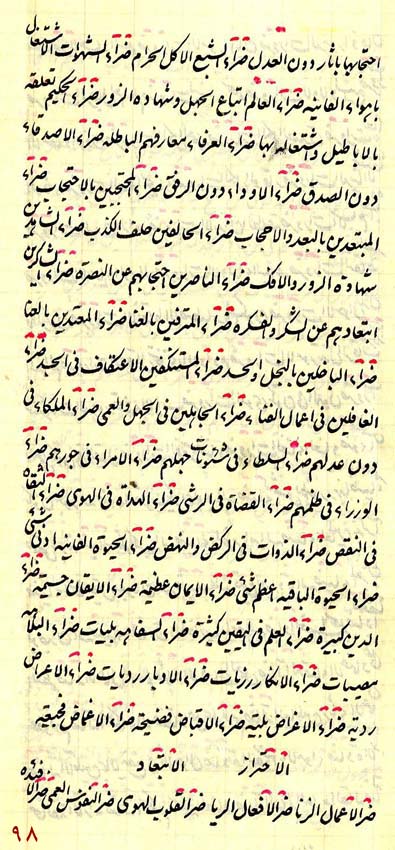 احتجابها باثار دون العدل ضراء الشبع الاكل الحرام ضراء الشهوات الاشتغال
باهواء الفانيه ضراء العالم اتباع الجهل وشهاده الزور ضراء الحكيم تعلقه
بالاباطيل واشتغاله بها ضراء العرفاء معارفهم الباطله ضراء الاصدقاء
دون الصدق ضراء الاوداء دون الرفق ضراء المحتجبين بالاحتجاب ضراء
المبتعدين بالبعد والاحجاب ضراء الحالفين حلف الكذب ضراء الشاهدين
شهادة الزور والافك ضراء الناصرين احتجابهم عن النصرة ضراء الشاكرين
ابتعادهم عن الشكر والفكره ضراء المترفين بالغنا ضراء المعتدين بالعنا
ضراء الباخلين بالبخل والحسد ضراء المستنكفين الاعتكاف فى الحسد ضراء
الغافلين فى اعمال الفناء ضراء الجاهلين فى الجهل والعمى ضراء الملكاء فى
دون عدلهم ضراء السلطاء فى شئونات جهلهم ضراء الامراء فى جورهم ضراء
الوزراء فى ظلمهم ضراء القضاة فى الرشى ضراء الهداة فى الهوى ضراء
فى النقص ضراء الذوات فى الركض والنهض ضراء الحيوة الفانيه ادنى شئ
ضراء الحيوة الباقيه اعظم شئ ضراء الايمان عظيمة ضراء الايقان جسيمة ضراء
الدين كبيرة ضراء العلم فى اليقين كثيرة ضراء السفاهه بليات ضراء البلاهه
مصيبات ضراء الانكار رزيات ضراء الادبار رديات ضراء الاعراض
رديه ضراء الاغراض بليه ضراء الاقباض فضيحة ضراء الاغماض فجيعه
الاقتراز الابتعاد
ضر الاعمال الزنا ضر الافعال الريا ضر القلوب الهوى ضر النفوس العمى ضر الافئده
٩٨